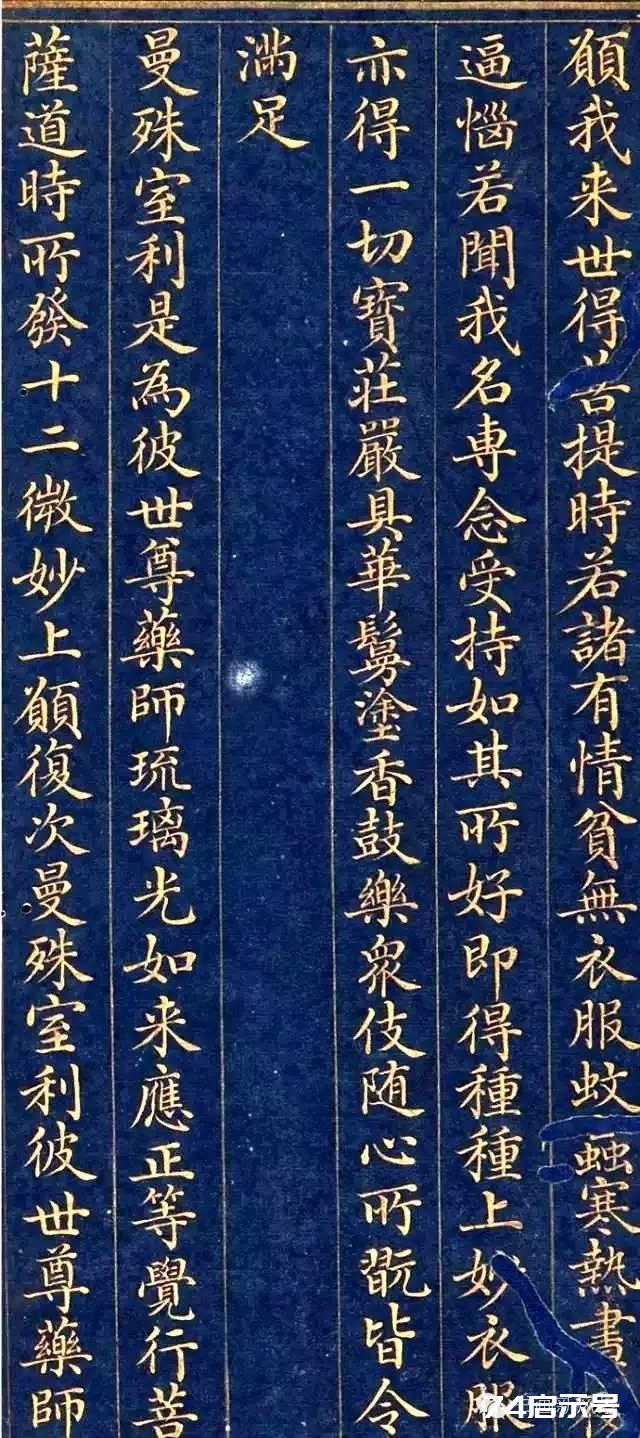 願我来世得菩提時若諸有情貧無衣服蚊䖟寒熱晝
逼惱若聞我名專念受持如其所好即得種種上妙衣服
亦得一切寶莊嚴具華鬘塗香鼓樂衆伎随心所翫皆令
滿足
曼殊室利是為彼世尊藥師琉璃光如来應正等覺行菩
薩道時所發十二微妙上願復次曼殊室利彼世尊藥師
74启示号